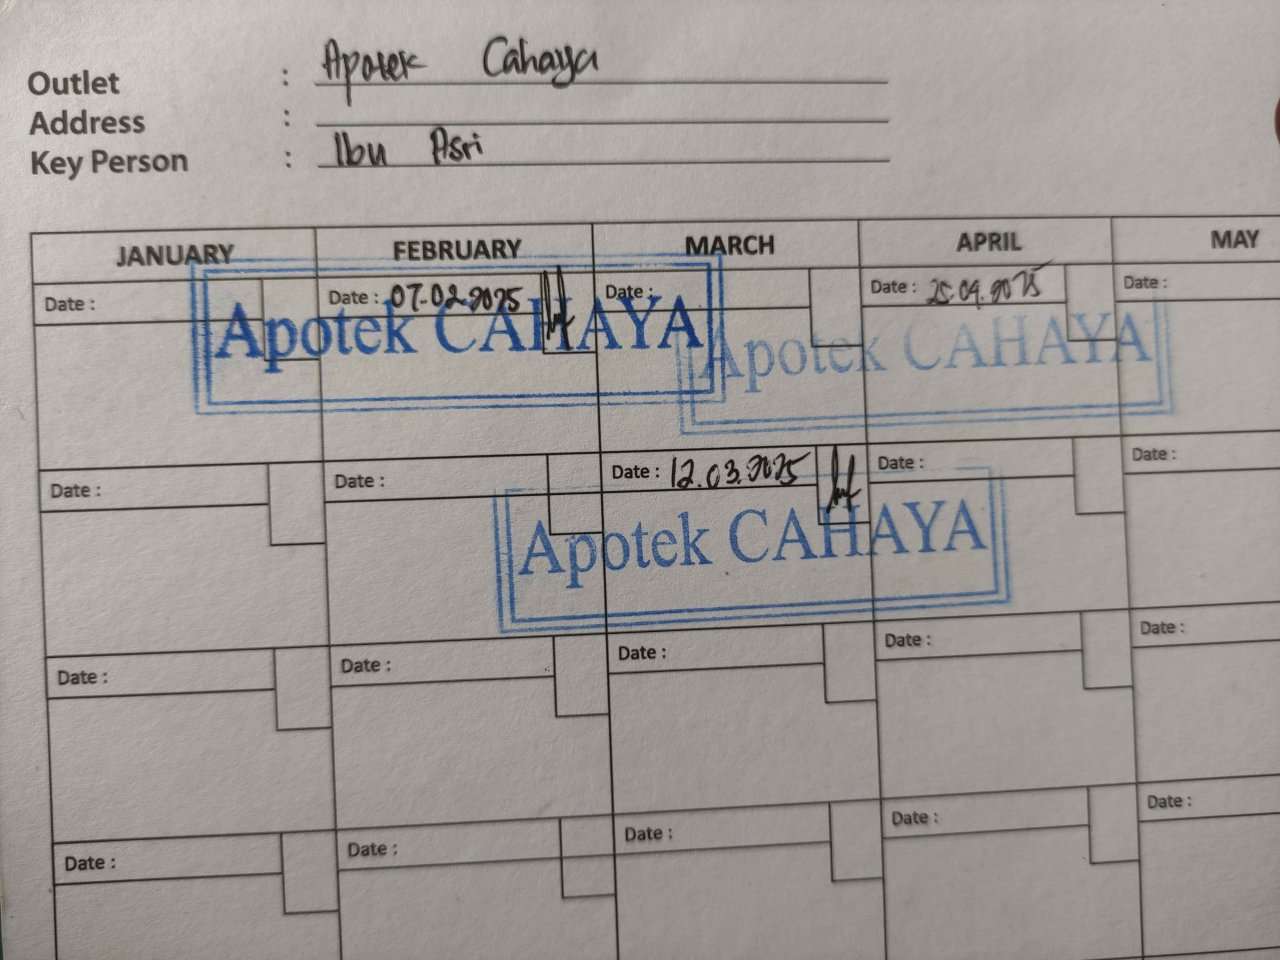 Outlet : Apotek Cahaya
Address :
Key Person : Ibu Asri
JANUARY FEBRUARY MARCH APRIL MAY
Date : Date : 07-02-2025 Date : Date : 25.04.2025 Date :
Apotek CAHAYA
Apotek CAHAYA
Date : Date : Date : 12.03.2025 Date : Date :
Apotek CAHAYA
Date : Date : Date : Date : Date :
Date : Date : Date : Date : Date :